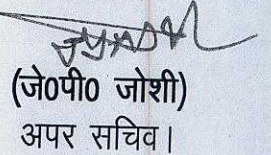 (जे0पी0 जोशी)
अपर सचिव।